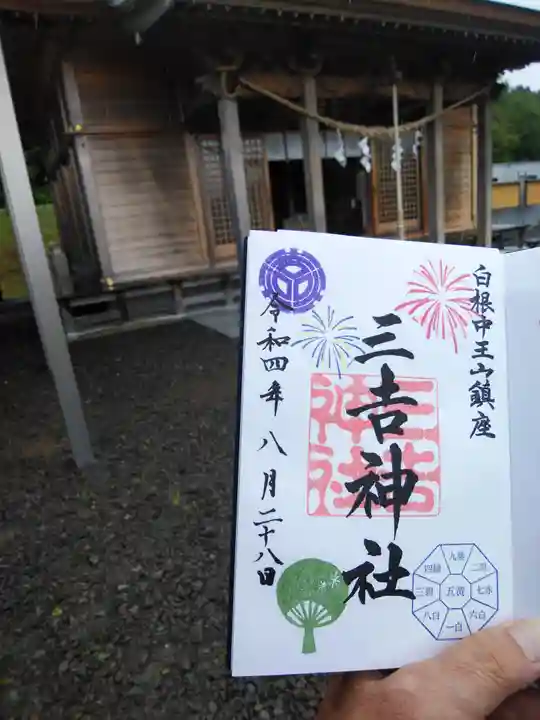 白根中王山鎮座
三吉神社
三吉神社
令和四年八月二十八日
四緑
九紫
二黒
三碧
五黄
七赤
八白
一白
六白